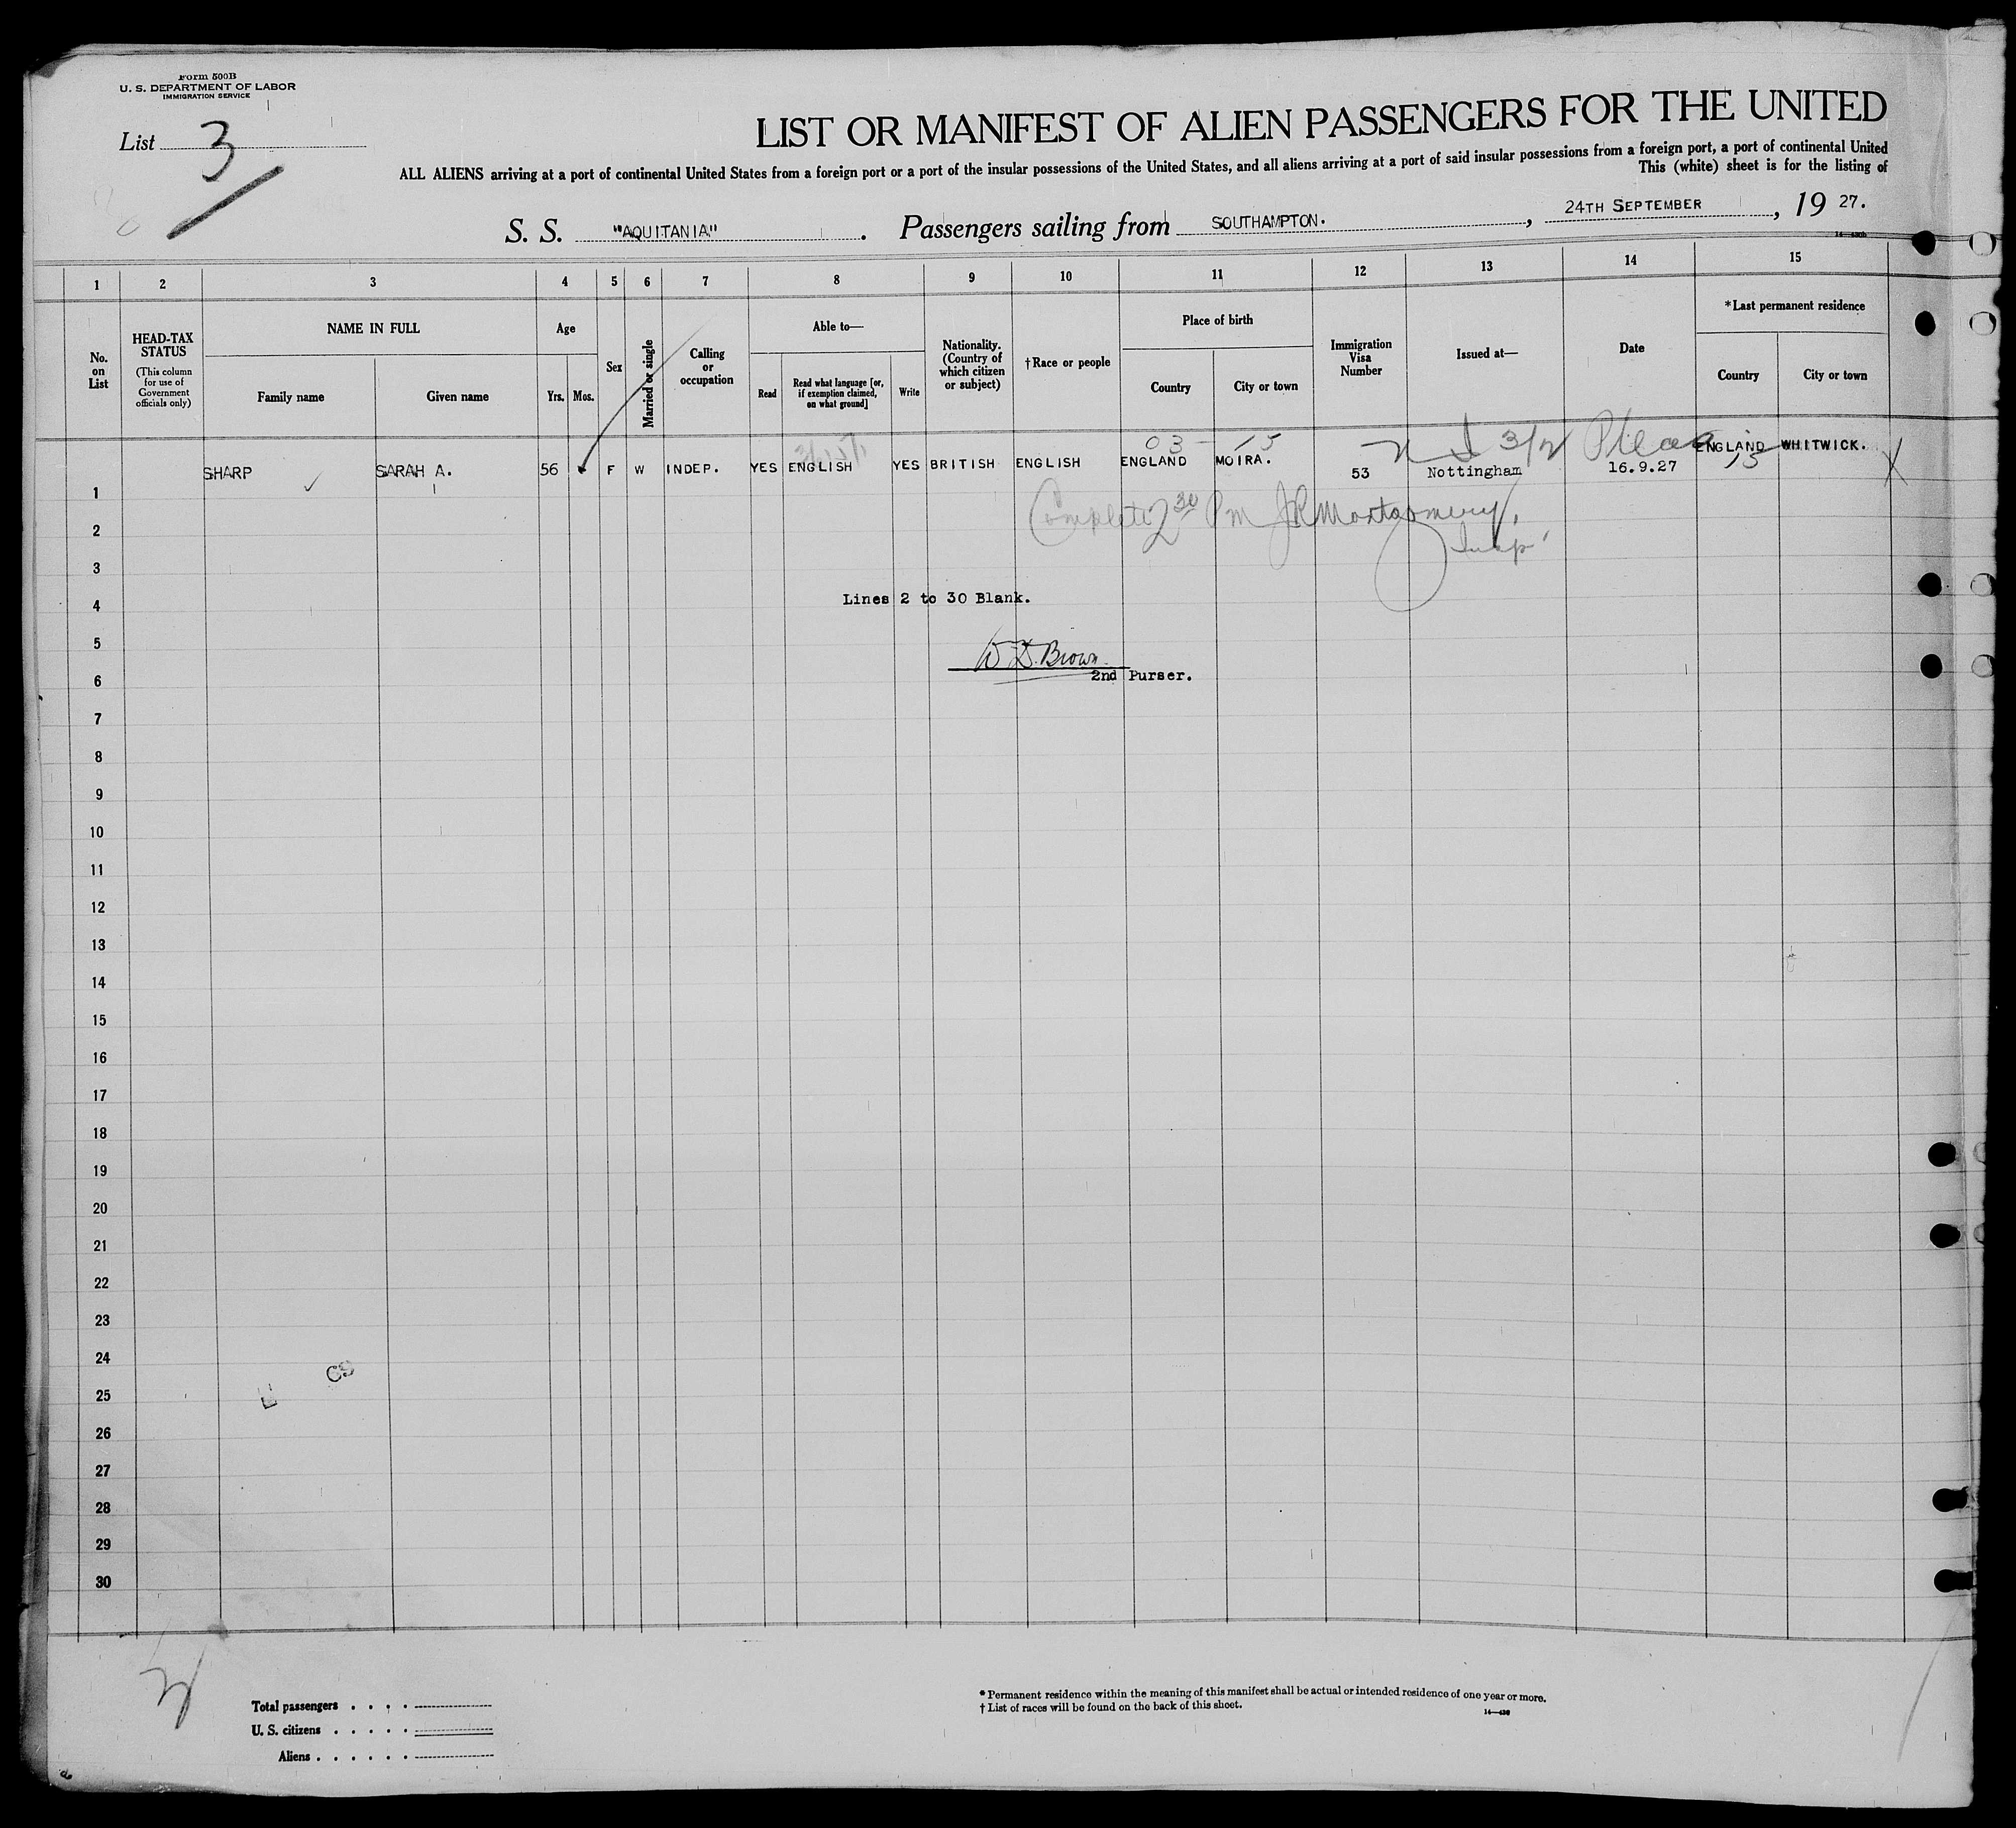 Form 500B
U. S. DEPARTMENT OF LABOR
IMMIGRATION SERVICE
List 3
LIST OR MANIFEST OF ALIEN PASSENGERS FOR THE UNITED
ALL ALIENS arriving at a port of continental United States from a foreign port or a port of the insular possessions of the United States, and all aliens arriving at a port of said insular possessions from a foreign port, a port of continental United
This (white) sheet is for the listing of
S. S. "AQUITANIA". Passengers sailing from SOUTHAMPTON. , 24TH SEPTEMBER , 19 27.
1 2 3 4 5 6 7 8 9 10 11 12 13 14 15
No. on List
HEAD-TAX STATUS
(This column for use of Government officials only)
NAME IN FULL
Family name
Given name
Age
Yrs.
Mos.
Sex
Married or single
Calling or occupation
Able to—
Read
Read what language [or, if exemption claimed, on what ground]
Write
Nationality. (Country of which citizen or subject)
†Race or people
Place of birth
Country
City or town
Immigration Visa Number
Issued at—
Date
*Last permanent residence
Country
City or town
03 - 15
SHARP SARAH A. 56 F W INDEP. YES ENGLISH YES BRITISH ENGLISH ENGLAND MOIRA. 53 Nottingham 16.9.27 ENGLAND WHITWICK. X
1
Complete 2 30 Pm JRMontgomery,
2
Insp.
3
Lines 2 to 30 Blank.
4
5
W. D. Brown
6
2nd Purser.
7
8
9
10
11
12
13
14
15
16
17
18
19
20
21
22
23
24
25
26
27
28
29
30
Total passengers . . . .
U. S. citizens . . . . .
Aliens . . . . . .
* Permanent residence within the meaning of this manifest shall be actual or intended residence of one year or more.
† List of races will be found on the back of this sheet.
14—430